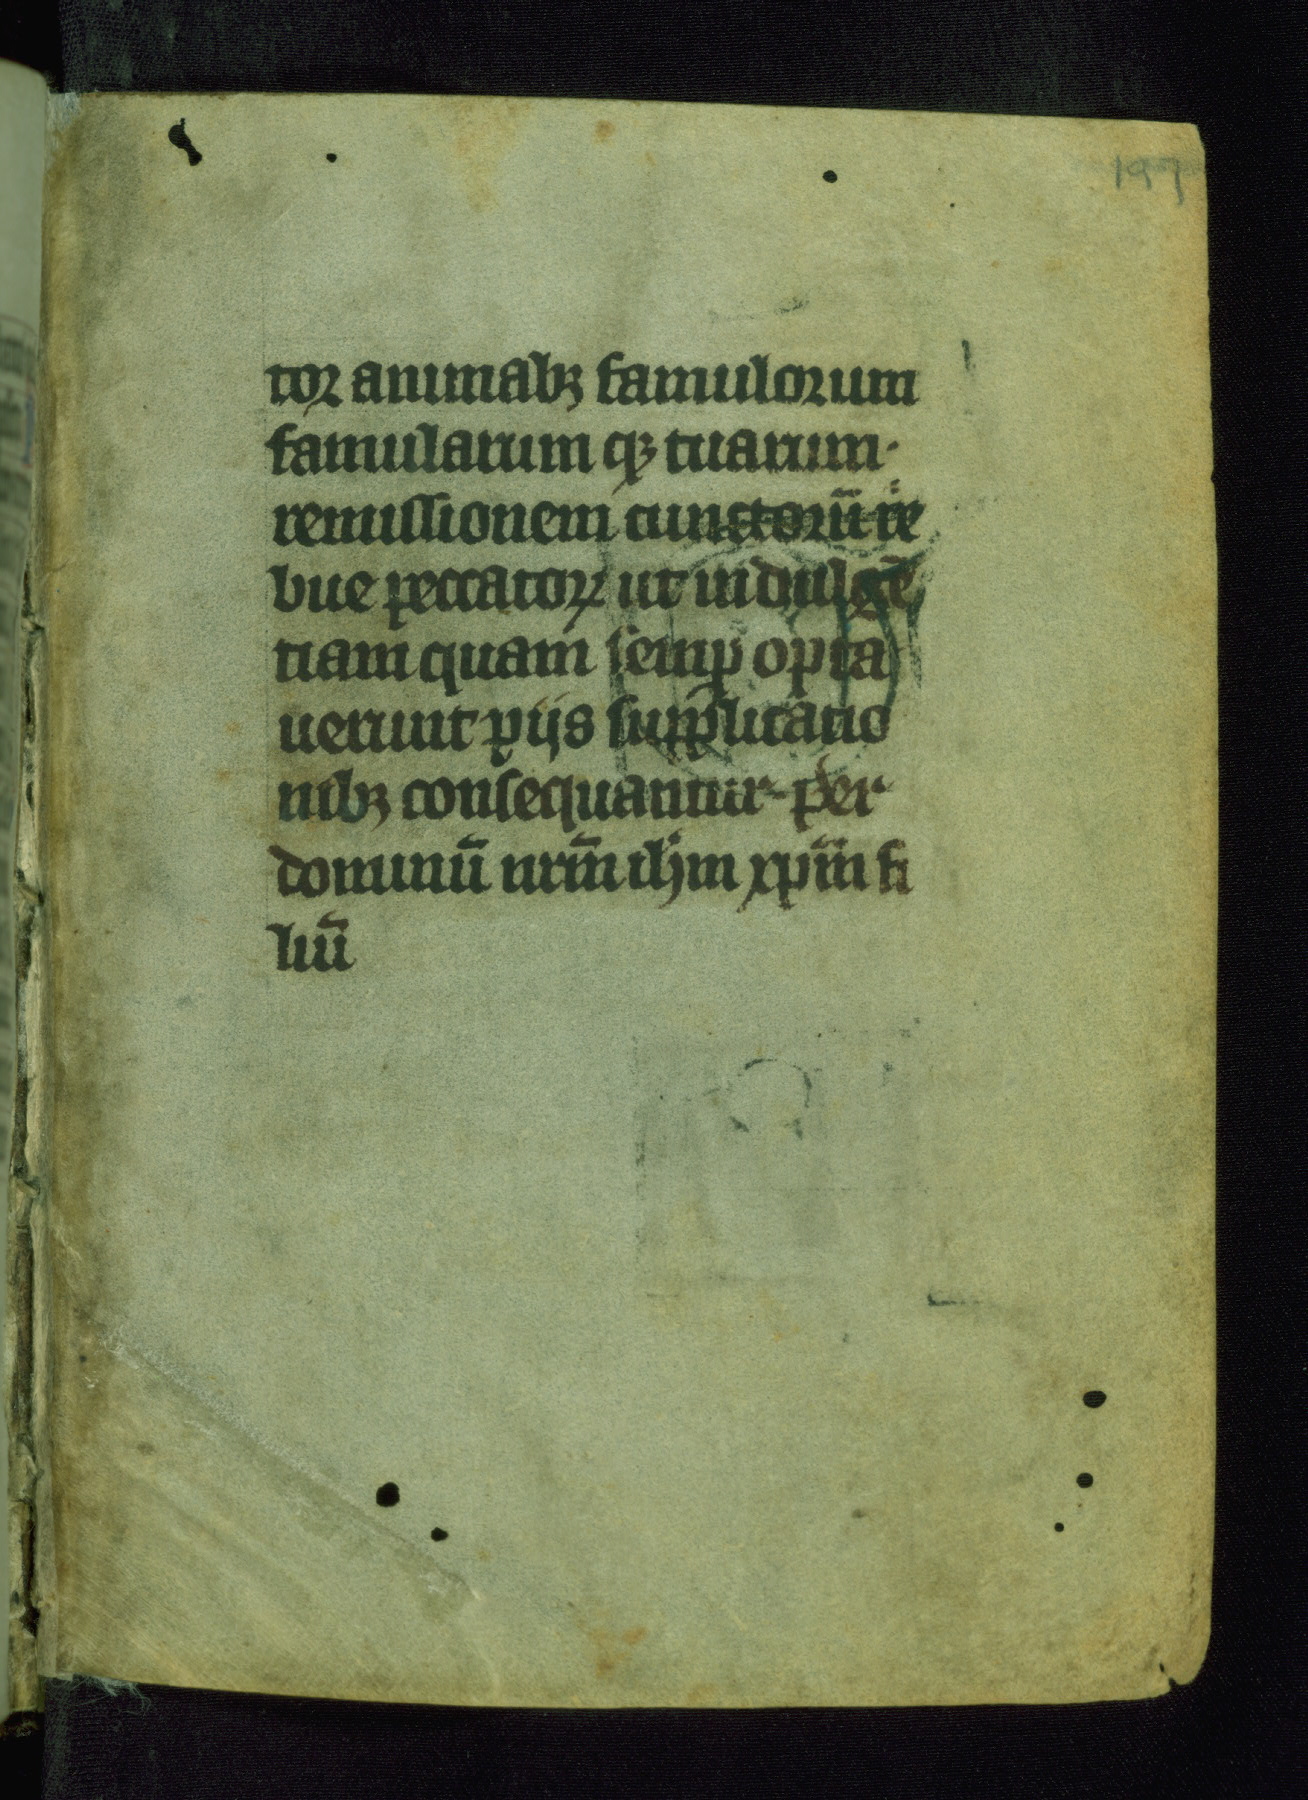 197
tor animabꝫ famulorum
famularum qꝫ tuarum·
remissionem cunctorū tⁱ
bue peccatoꝝ ut indulgē
tiam quam semꝑ opta
uerunt pijs supplicatio
nibꝫ consequantur· per
dominū nrm̄ ihm xpm̄ fi
liū